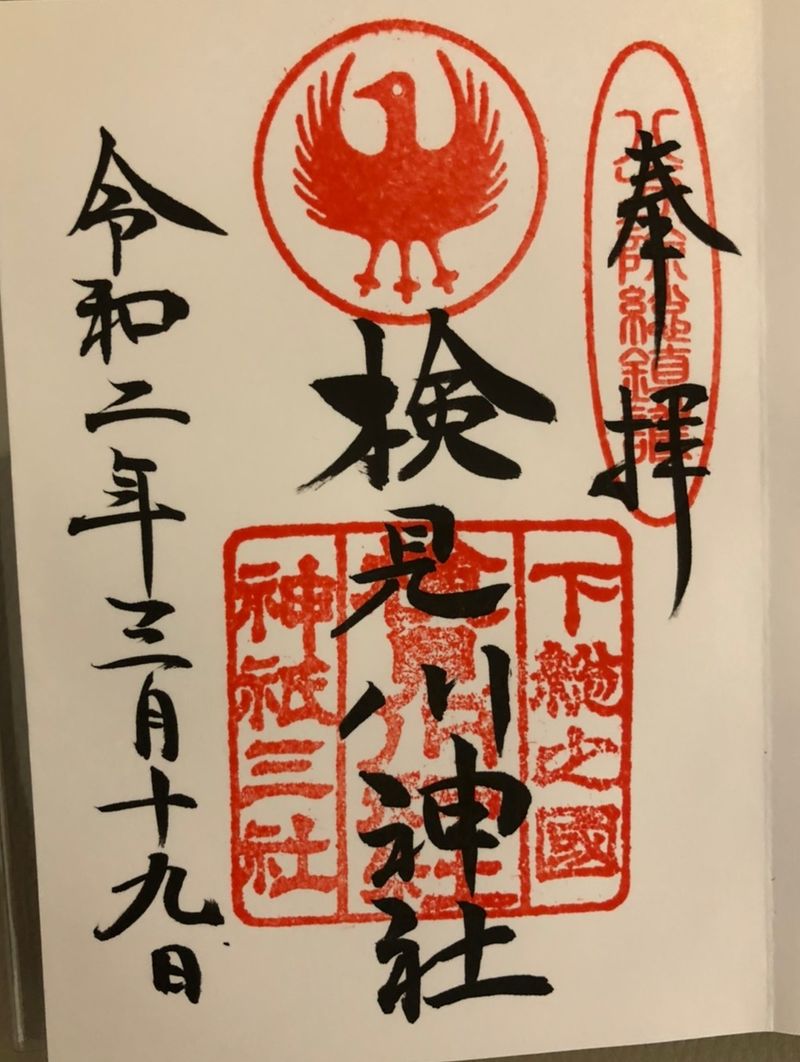 奉拝
八方除総鎮護
下総之國
検見川神社
検見川神社
神祇三社
令和二年三月十九日